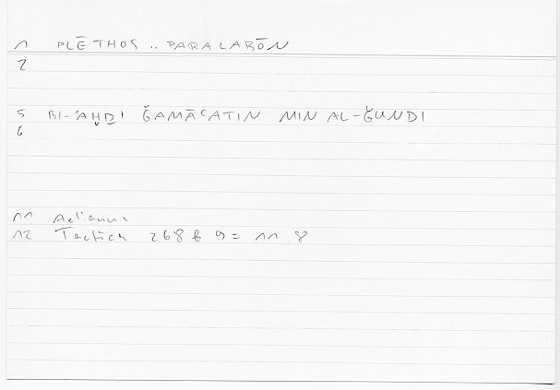 1 PLĒTHOS .. PARALABŌN
2
5 BI-ʾAḪḎI ǦAMĀʿATIN MIN AL-ǦUNDI
6
11 Aelianus
12 Tactica 268 b 9 = 11 8